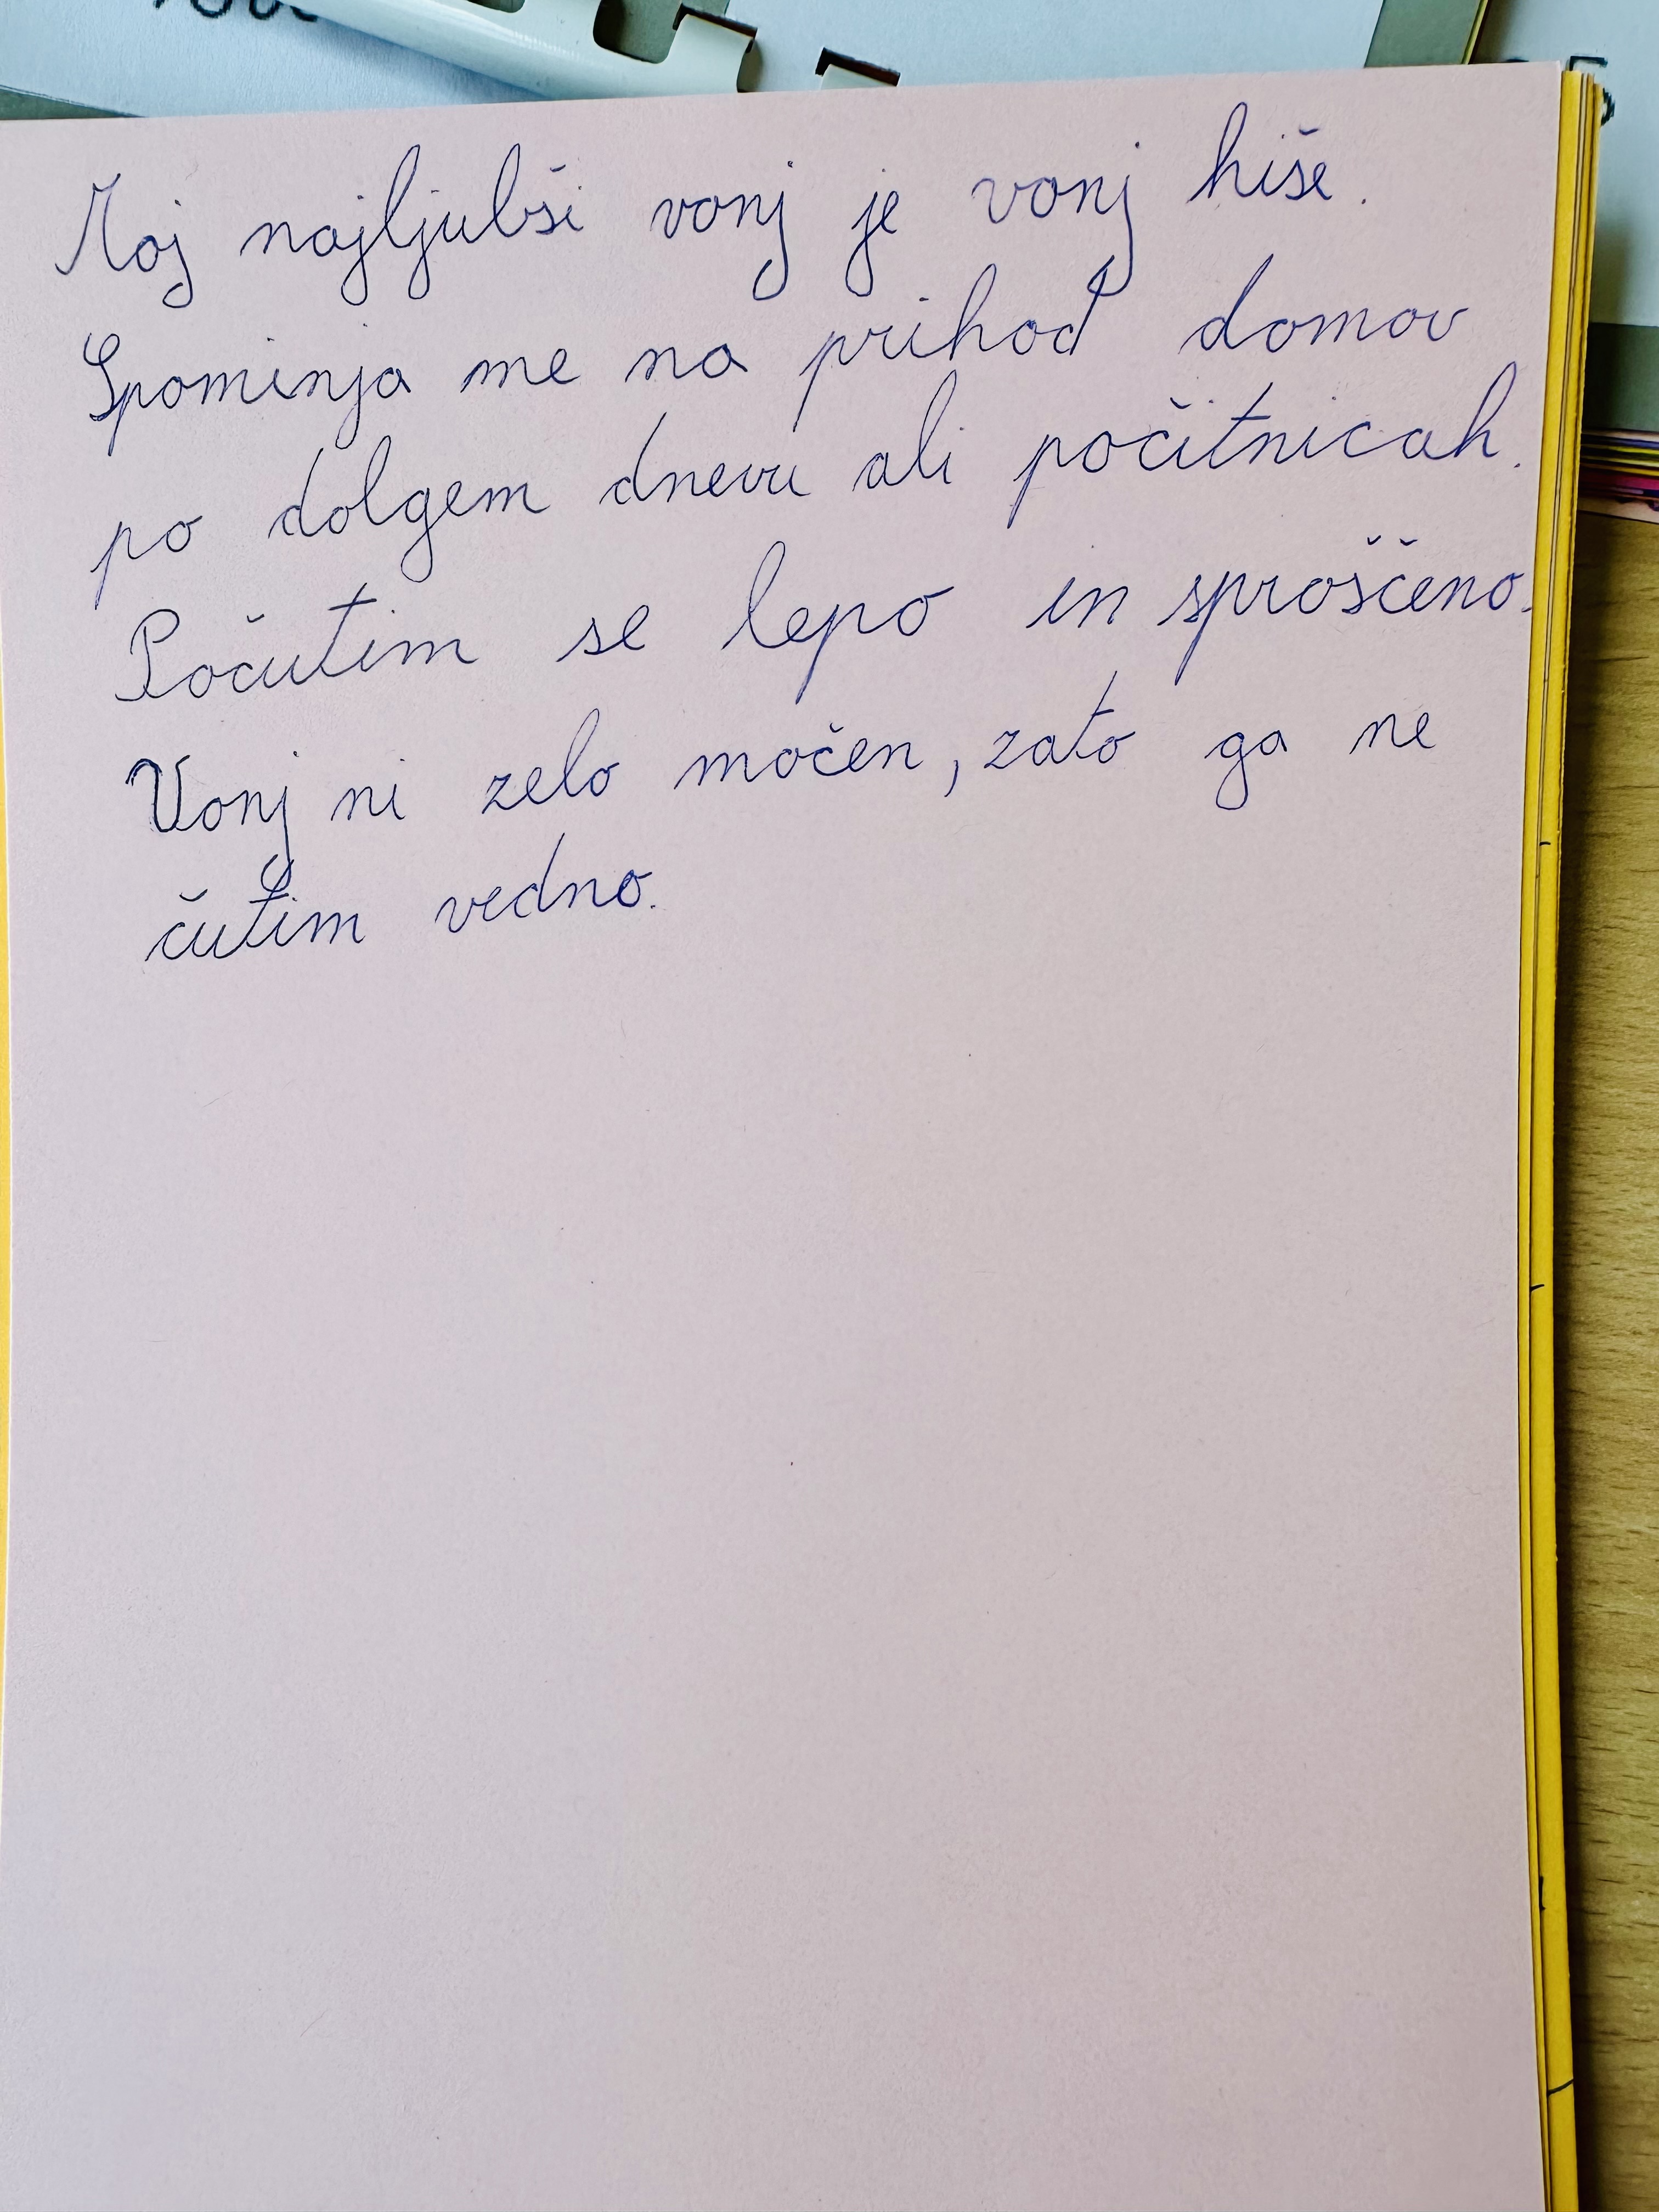 Moj najljubši vonj je vonj hiše.
Spominja me na prihod domov
po dolgem dnevu ali počitnicah.
Počutim se lepo in sproščeno.
Vonj ni zelo močen, zato ga ne
čutim vedno.